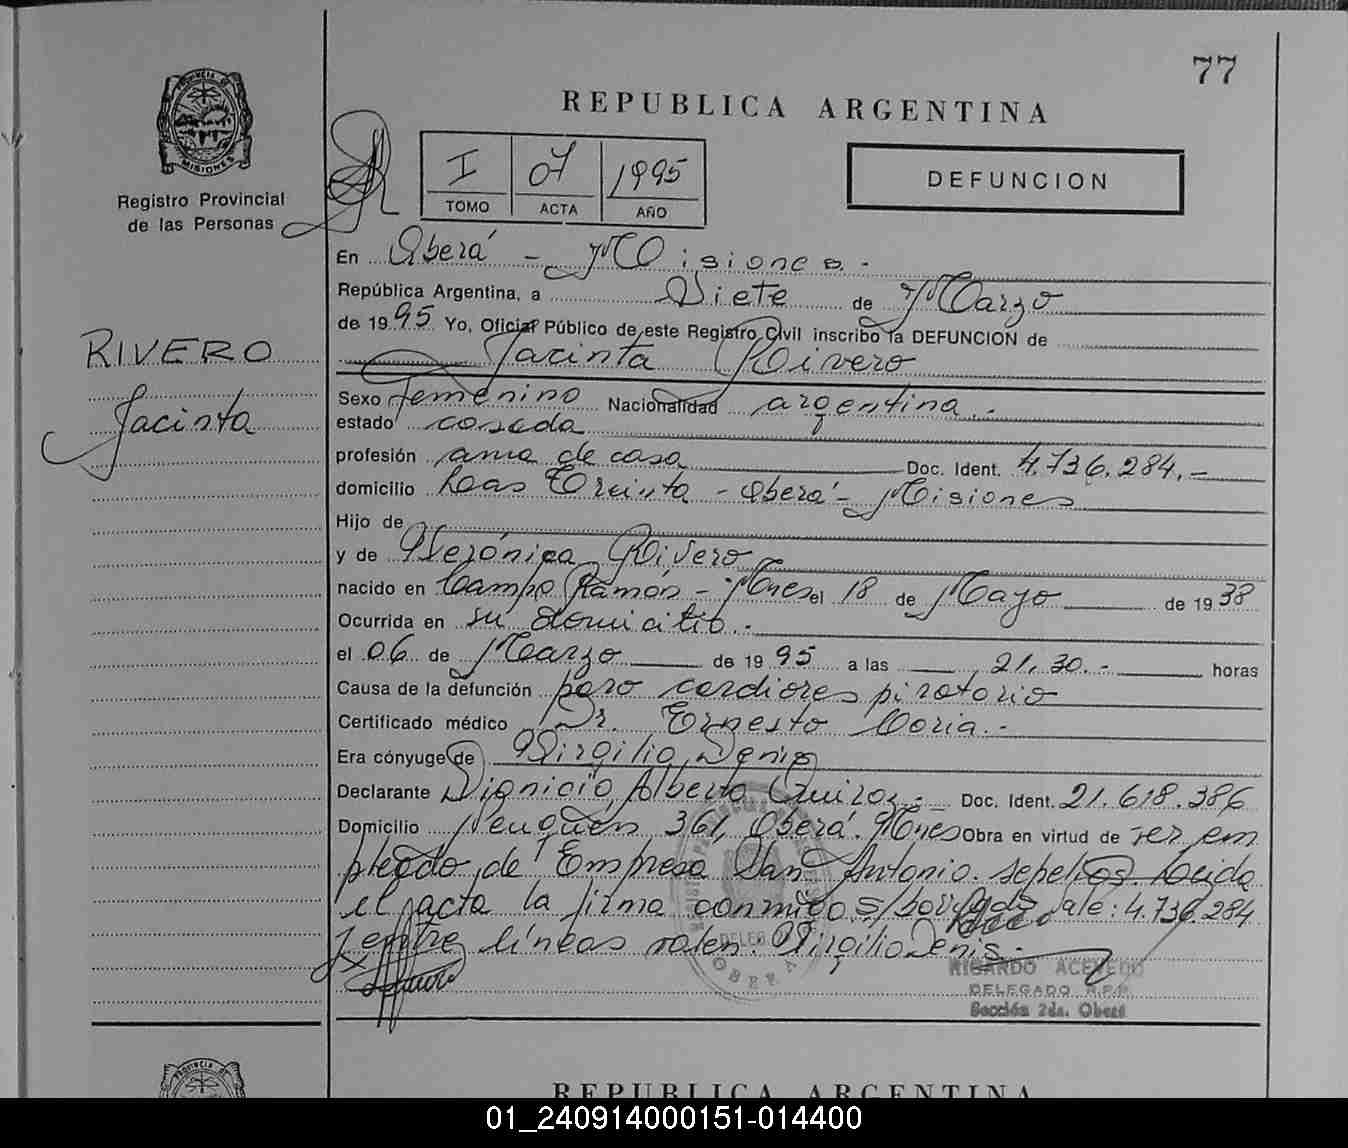 77
PROVINCIA DE
MISIONES
Registro Provincial
de las Personas
REPUBLICA ARGENTINA
I 07 1995
TOMO ACTA AÑO
DEFUNCION
En Oberá - Misiones.-
República Argentina, a Siete de Marzo
de 1995 Yo, Oficial Público de este Registro Civil inscribo la DEFUNCION de
Jacinta Rivero
RIVERO
Jacinta
Sexo femenino Nacionalidad argentina.-
estado casada
profesión ama de casa Doc. Ident. 4.736.284.-
domicilio Las Treinta - Oberá - Misiones
Hijo de
y de Verónica Rivero
nacido en Campo Ramón - Mnes el 18 de Mayo de 1938
Ocurrida en su domicilio.-
el 06 de Marzo de 1995 a las 21.30.- horas
Causa de la defunción paro cardiorespiratorio
Certificado médico Dr. Ernesto Coria.-
Era cónyuge de Virgilio Denis
Declarante Dionicio Alberto Quiroz.- Doc. Ident. 21.618.386
Domicilio Neuquén 361, Oberá. Mnes Obra en virtud de ser em
pleado de Empresa San Antonio. sepelios. Leida
el acta la firma conmigo s/borrado vale: 4.736.284
y entre líneas valen: Virgilio Denis.-
OBERA
RICARDO ACEVEDO
DELEGADO R.P.P.
Sección 2da. Oberá
PROVINCIA DE
REPUBLICA ARGENTINA
01_240914000151-014400